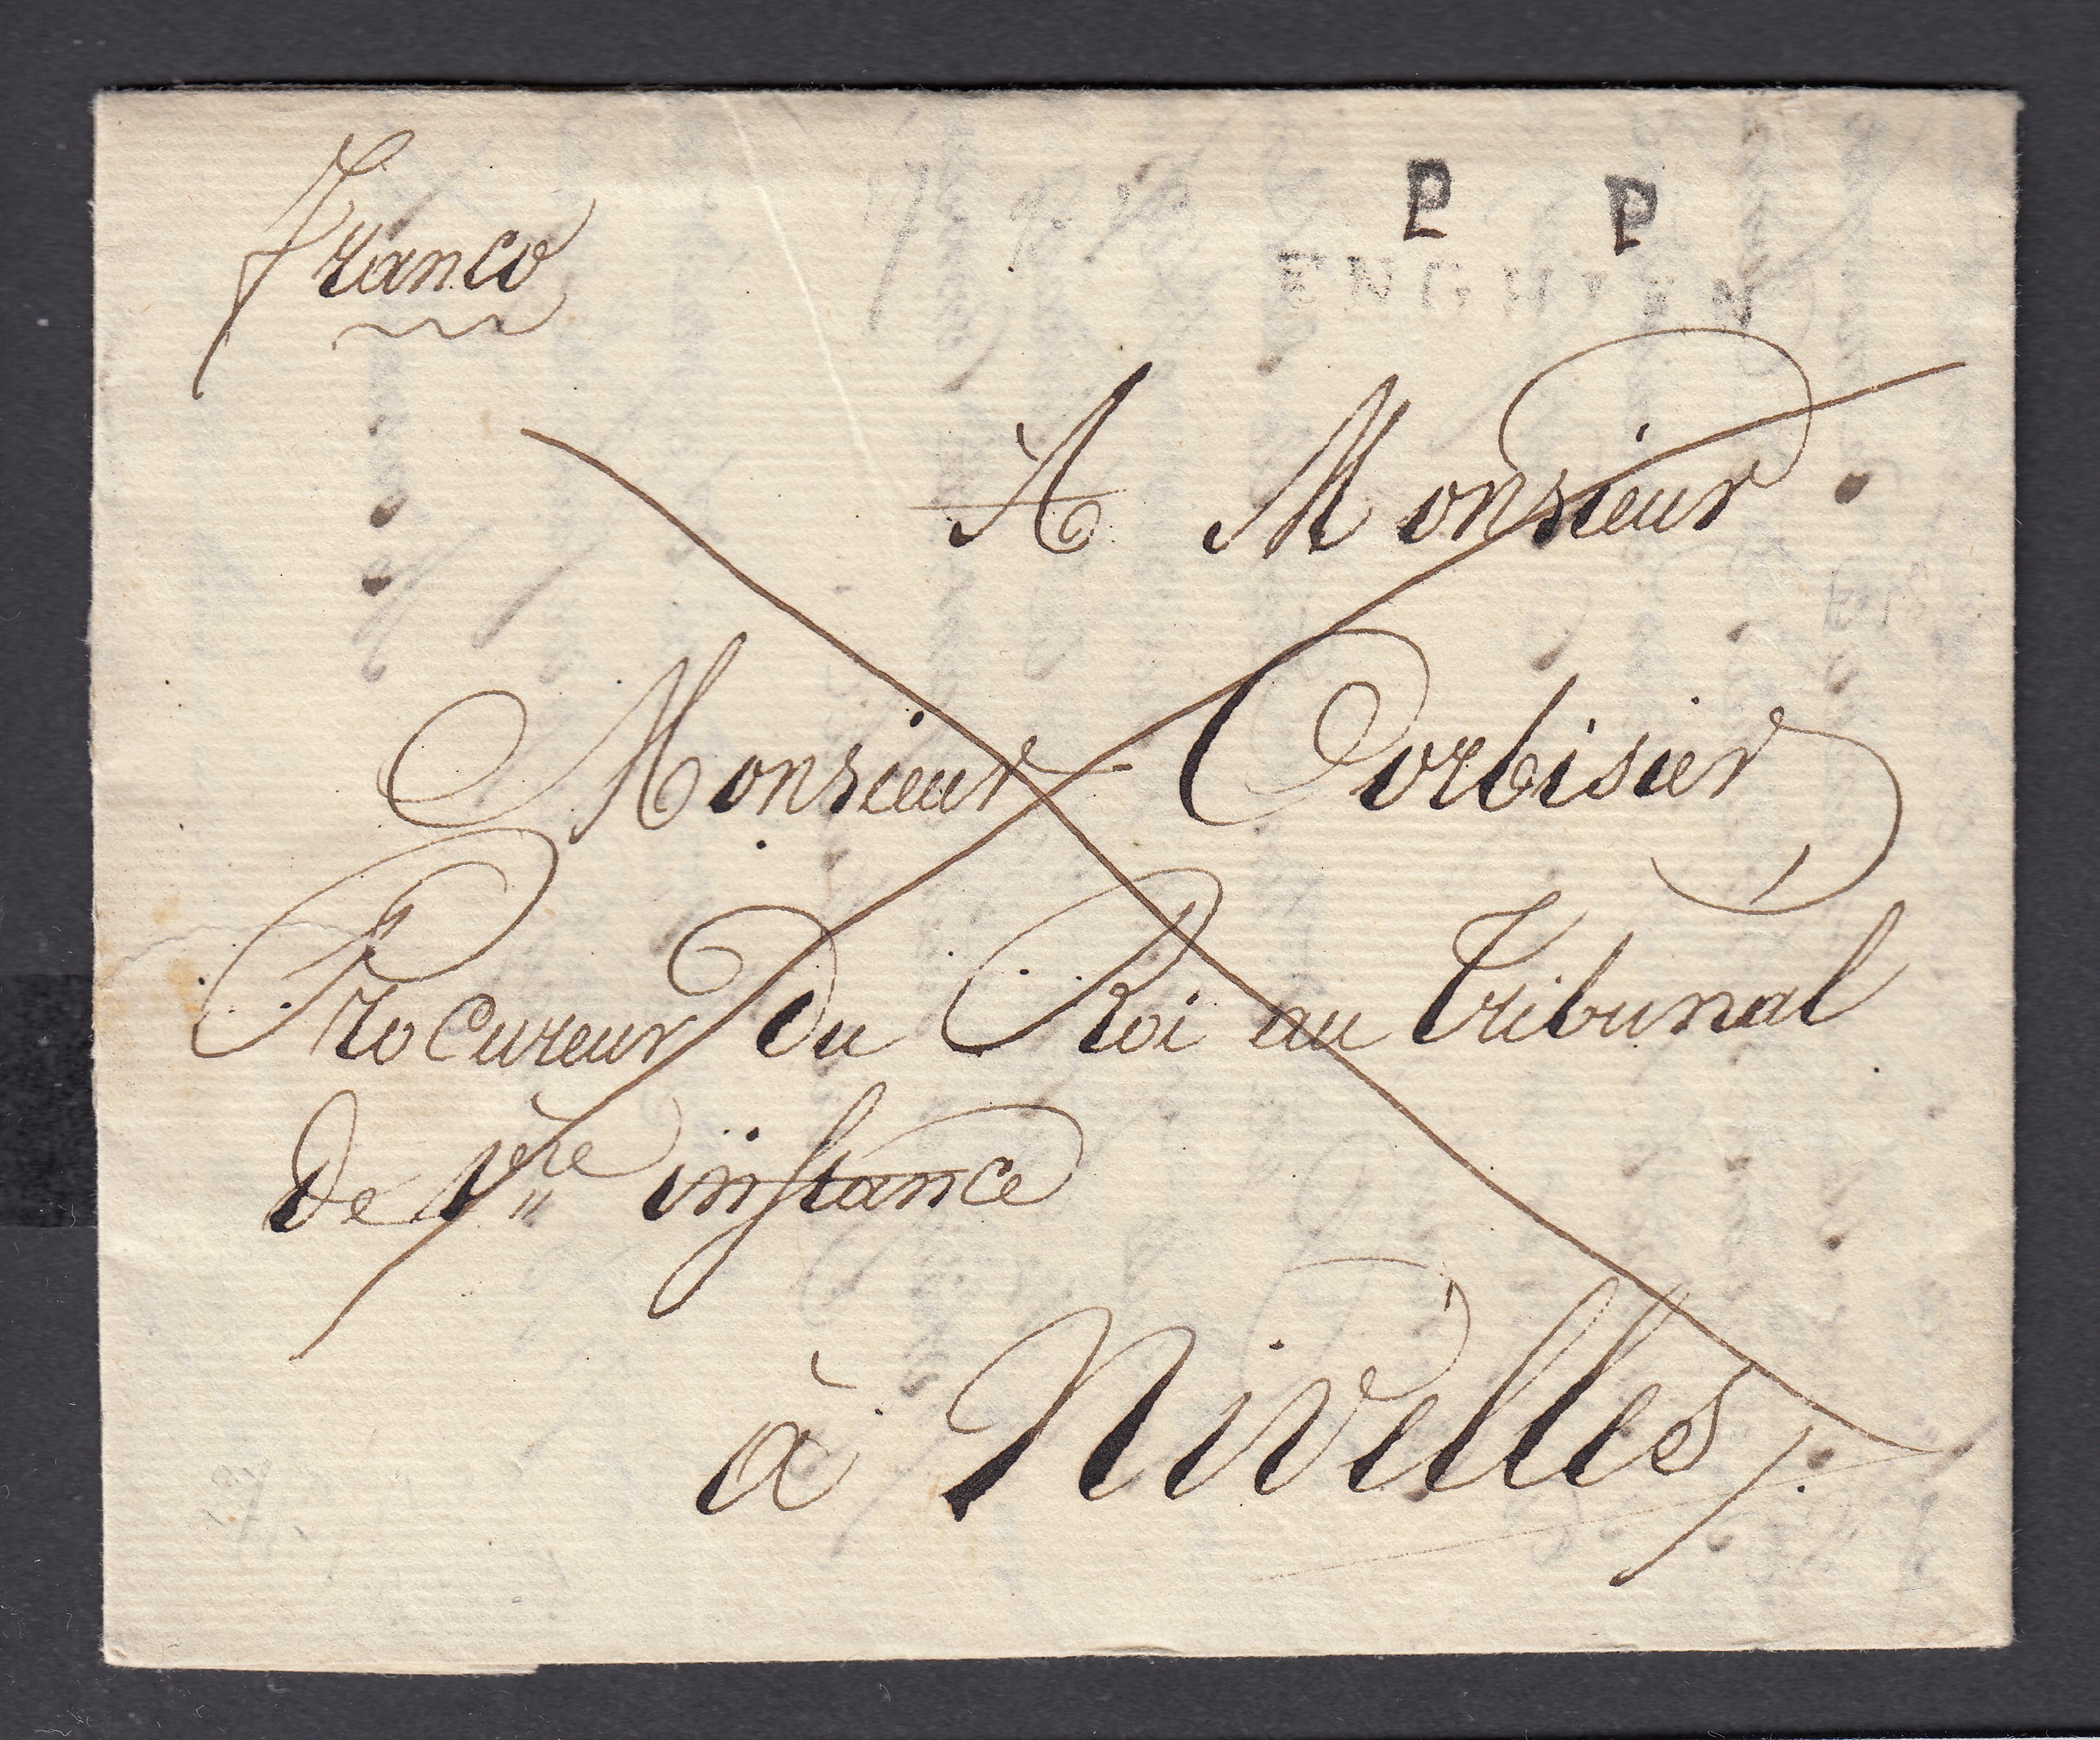 franco
P P
ENGHIEN
A Monsieur
Monsieur Corbisier
Procureur Du Roi au Tribunal
De 1ere instance
à Nivelles